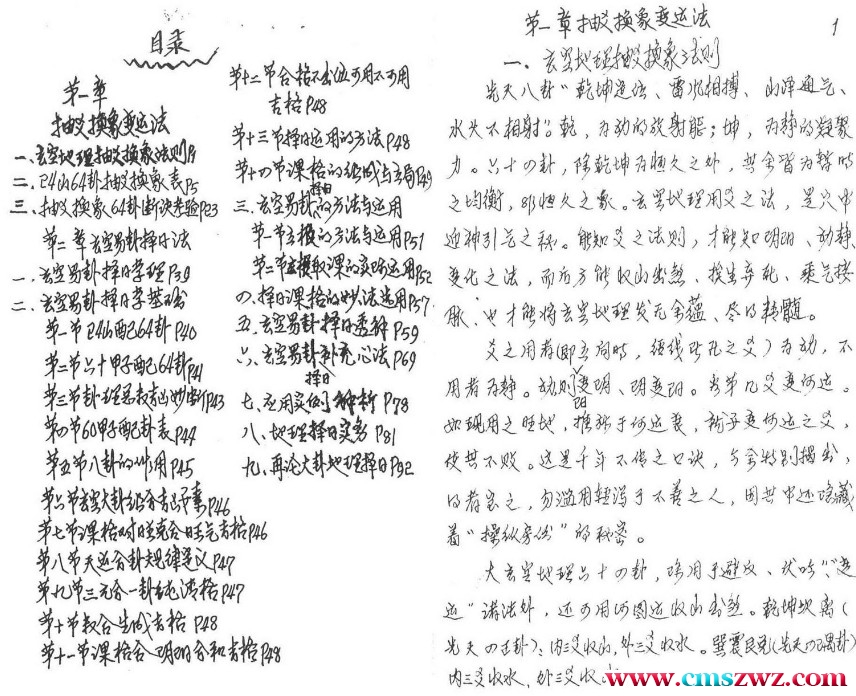 目录
第一章
抽爻换象变运法
一、玄空地理抽爻换象法则P1
二、24山64卦抽爻换象表P5
三、抽爻换象64卦断诀考验P23
第二章玄空易卦择日法
一、玄空易卦择日学理P39
二、玄空易卦择日学基础
第一节24山配64卦P40
第二节六十甲子配64卦P41
第三节卦理总表吉凶妙断P43
第四节60甲子配卦表P44
第五节八卦的作用P45
第六节玄空大卦组合吉凶要素P46
第七节课格对旺克合旺气吉格P46
第八节天运合卦规律定义P47
第九节第三元合一卦纯清格P47
第十节数合生成吉格 P48
第十一节课格合阴阳合和吉格P48
第十二节合格不出位可用不可用
吉格P48
第十三节择日运用的方法P48
第十四节课格的组成与立局P49
三、玄空易卦择日的方法与运用
第一节立极的方法与运用P51
第二节主极取课的实际运用P52
四、择日课格的妙法运用P57
五、玄空易卦择日透解P59
六、玄空易卦择日补充心法P69
七、应用实例解析P78
八、地理择日实务P81
九、再论大卦地理择日P92
1
第一章抽爻换象变运法
一、玄空地理抽爻换象法则
先天八卦"乾坤定位、雷风相搏、山泽通气、
水火不相射"。乾，为动的放射能；坤，为静的凝聚
力。六十四卦，除乾坤为恒久之外，其余皆为暂时
之均衡，非恒久之象。玄空地理用爻之法，是穴中
迎神引气之秘。能知爻之法则，才能知阴阳、动静
变化之法，而后方能收山出煞、挨生弃死、乘气接
脉，也才能将玄空地理发无余蕴、尽得精髓。
爻之用者(即立向时，细线所孔之爻)为动，不
用者为静。动则变，阳变阴、阴变阳。当第几爻变何运。
如现用之旺地，推我于何运衰，就予变何运之爻，
使其不败。这是千年不传之口诀，今余特别揭出，
得者宝之，勿滥用轻泻于不善之人，因其中还隐藏
着"操纵房份"的秘密。
大玄空地理六十四卦，除用于避反、伏吟、"变
运"诸法外，还可用河图运收山出煞。乾坤坎离(
先天四正卦)：内三爻收山，外三爻收水。巽震艮兑(先天四隅卦)
内三爻收水、外三爻收山
www.cmszwz.com